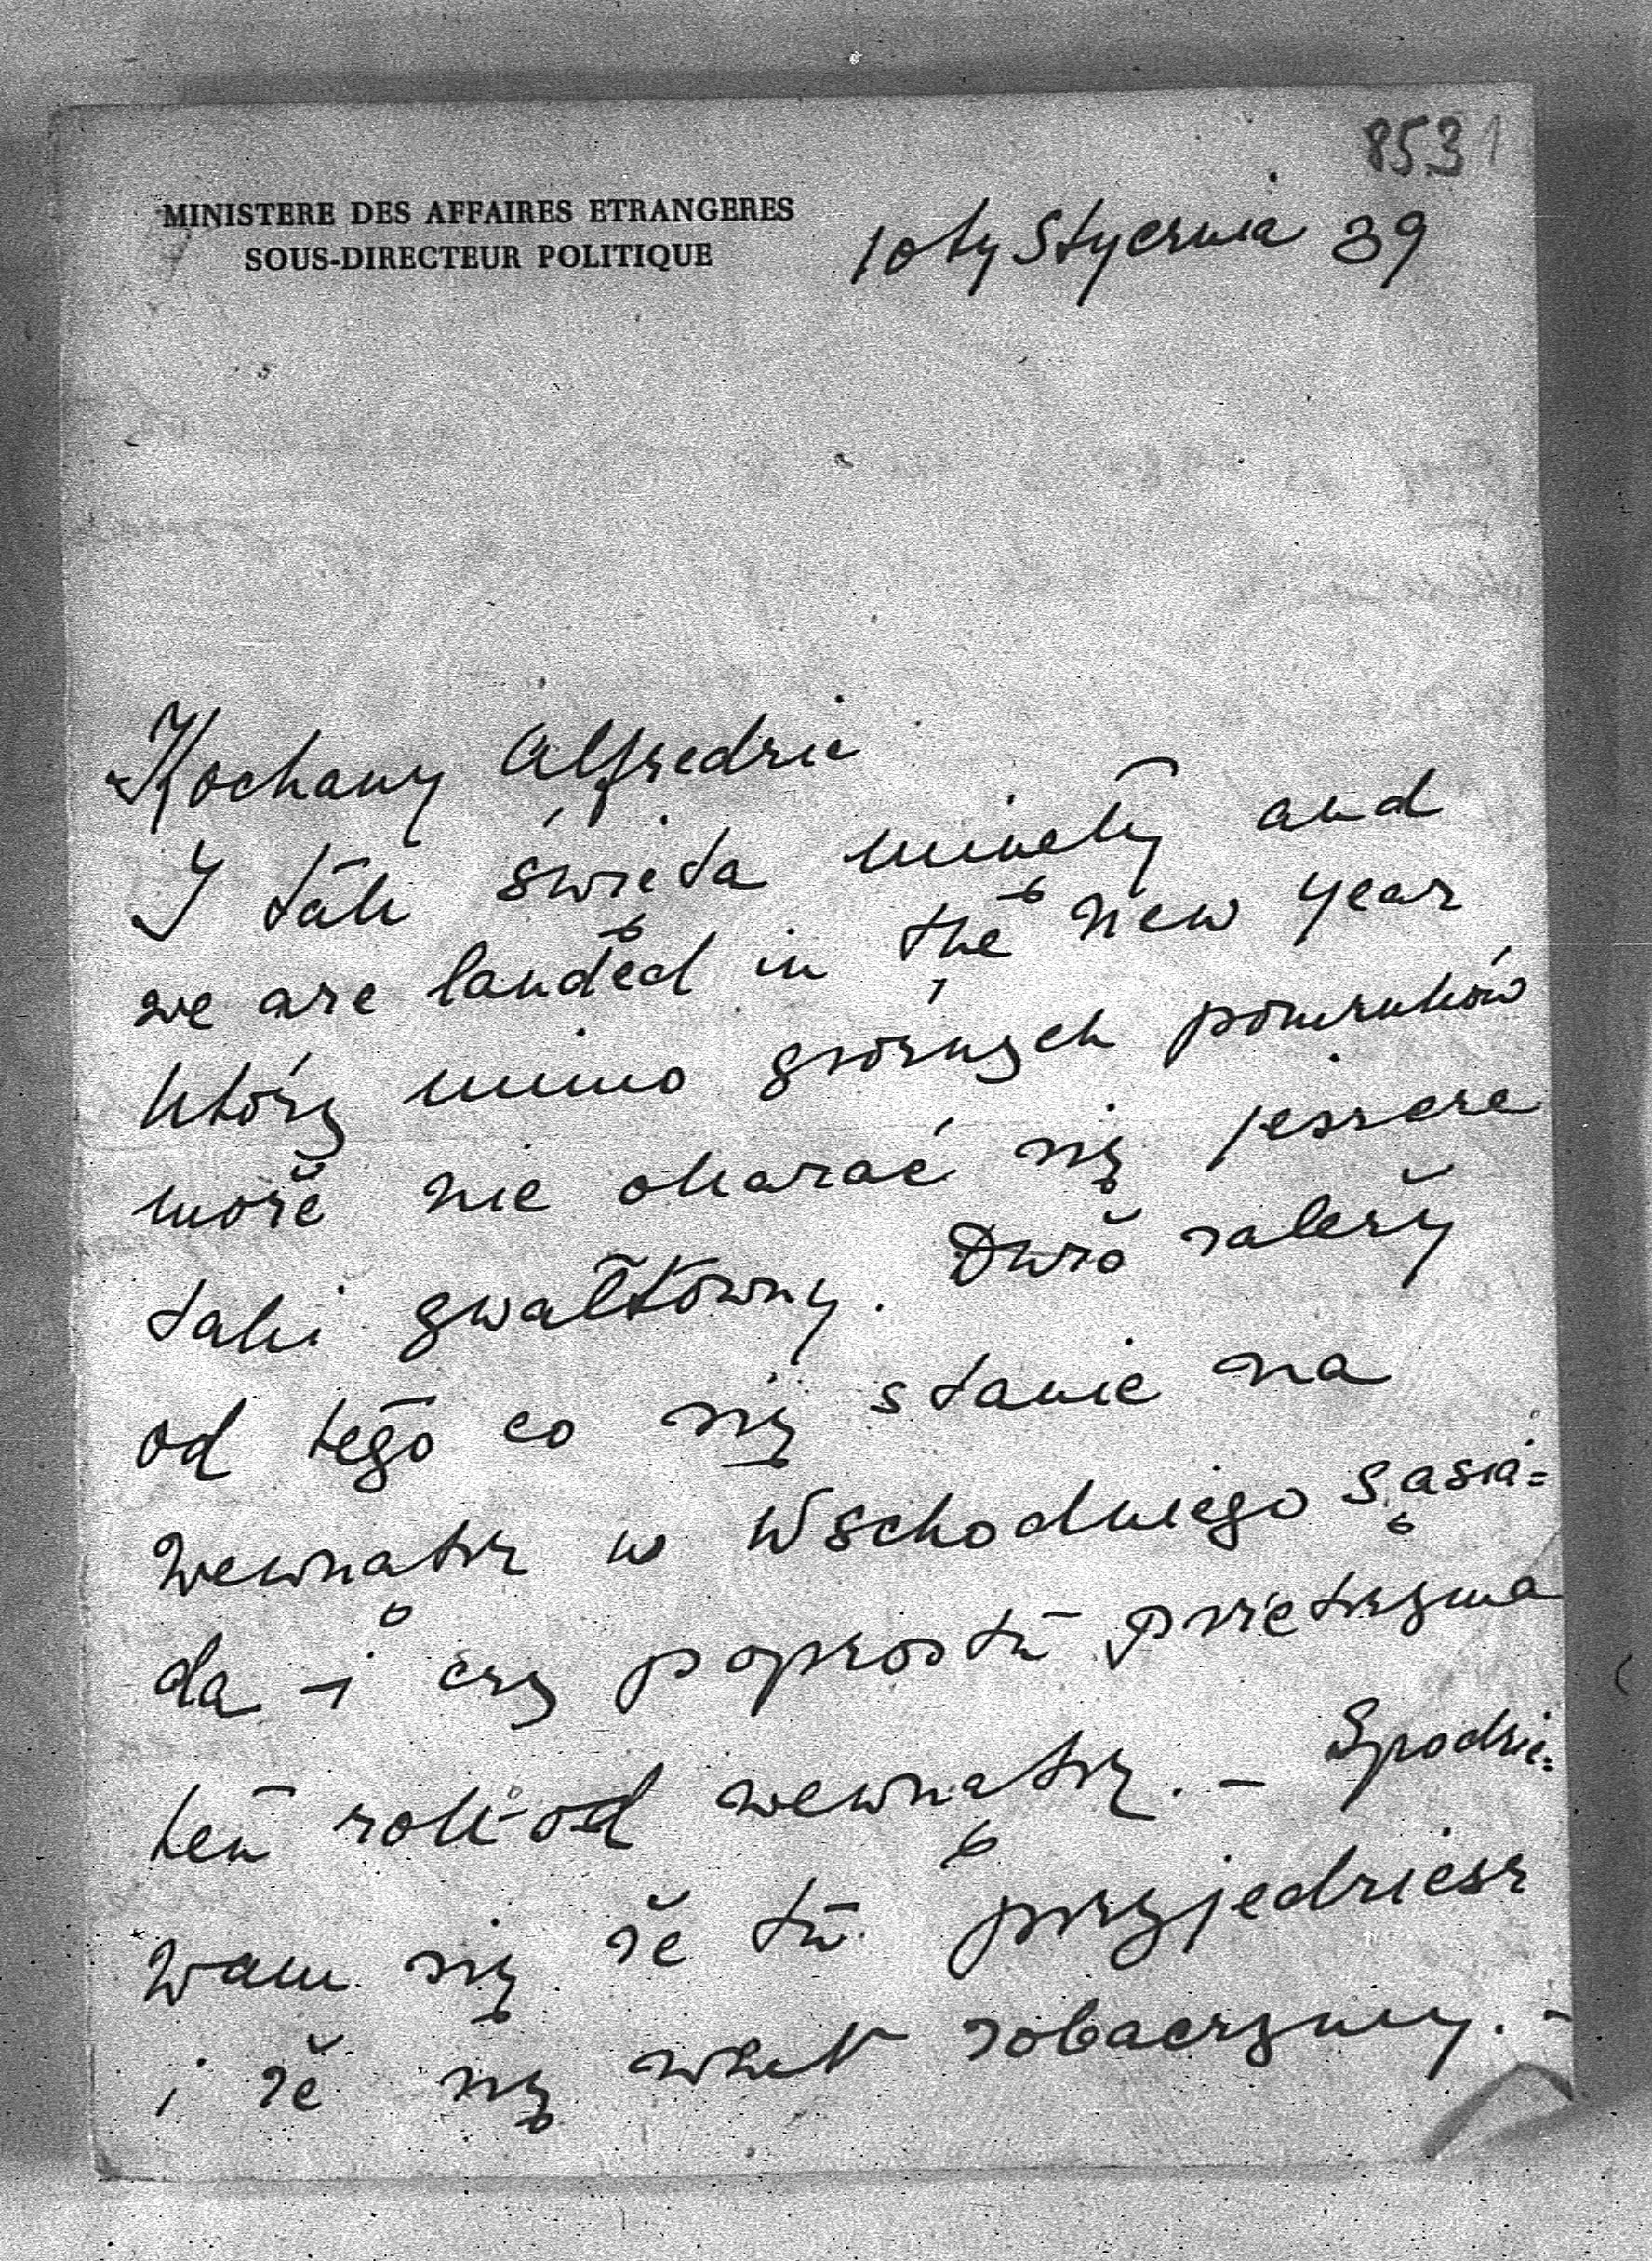 8531
MINISTERE DES AFFAIRES ETRANGERES
SOUS-DIRECTEUR POLITIQUE
10ty Stycznia 39
Kochany Alfredzie
I tak święta minęły and
we are landed in the New Year
który mimo groźnych pomruków
może nie okazać się jeszcze
taki gwałtowny. Dużo zależy
od tego co się stanie na
wewnątrz w Wschodniego Sąsia=
da – i czy poprostu przetrzyma
ten rok od wewnątrz. – Spodzie=
wam się że tu przyjedziesz
i że się wnet zobaczymy. –